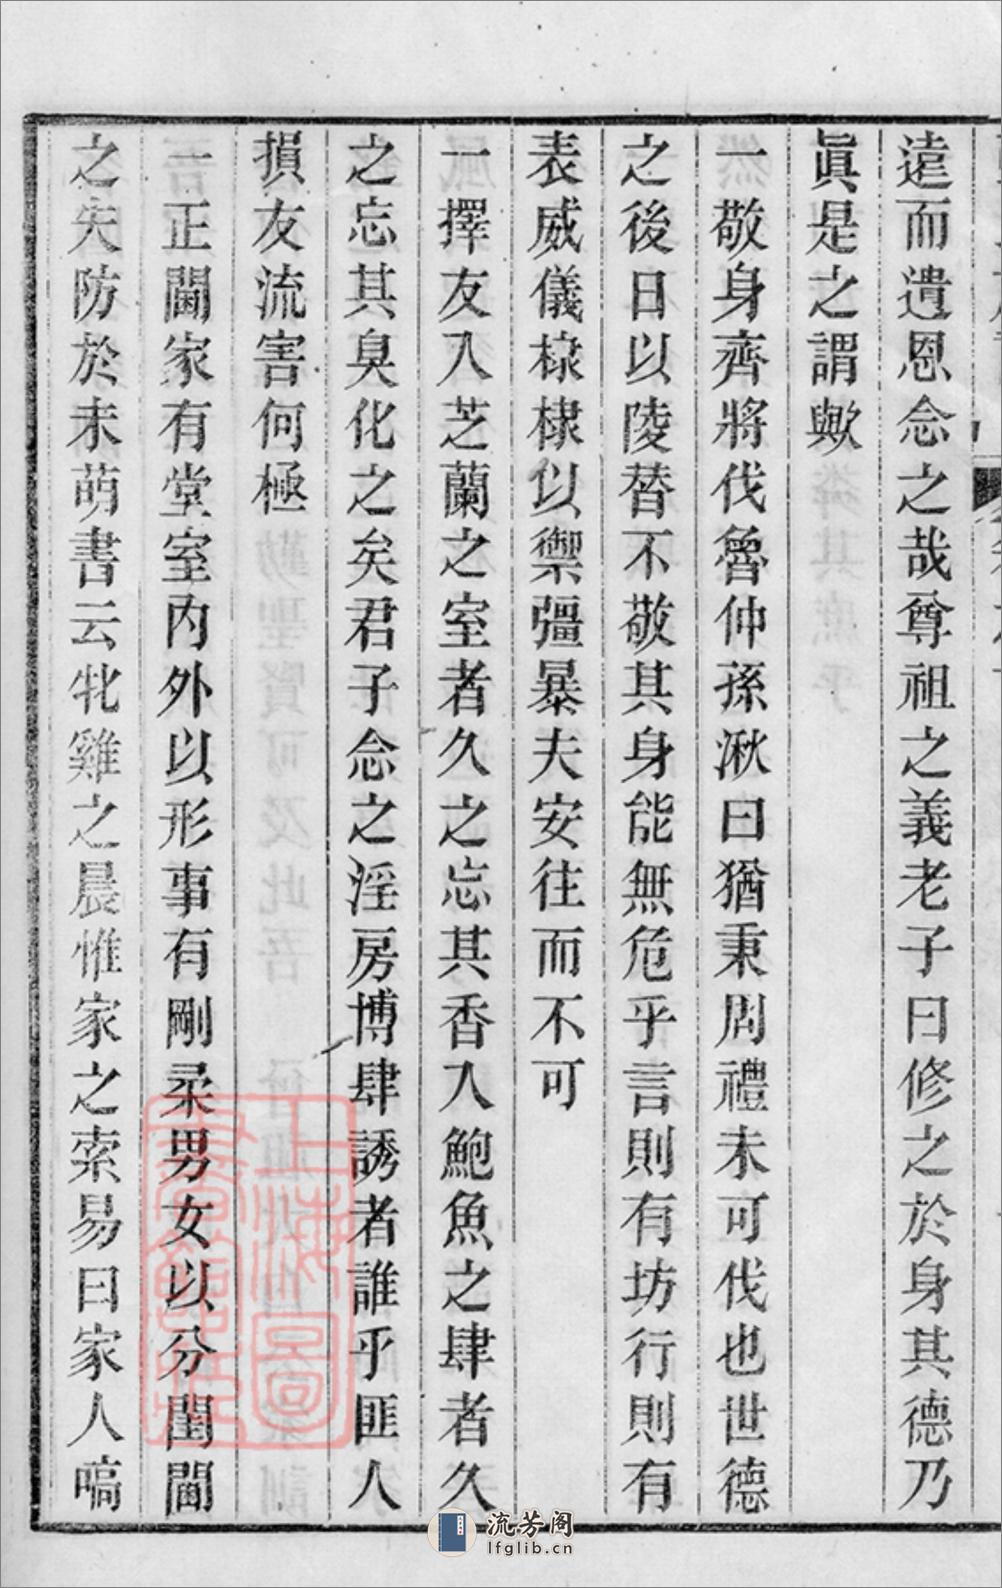 遠而遺恩念之哉尊祖之義老子曰修之於身其德乃
眞是之謂歟
一敬身齊將伐魯仲孫湫曰猶秉周禮未可伐也世德
之後日以陵替不敬其身能無危乎言則有坊行則有
表威儀棣棣以禦彊暴夫安往而不可
一擇友入芝蘭之室者久之忘其香入鮑魚之肆者久
之忘其臭化之矣君子念之淫房博肆誘者誰乎匪人
損友流害何極
一正閫家有堂室內外以形事有剛柔男女以分閨閫
之失防於未萌書云牝雞之晨惟家之索易曰家人嗃
上海圖
書館藏
流芳阁
lfglib.cn